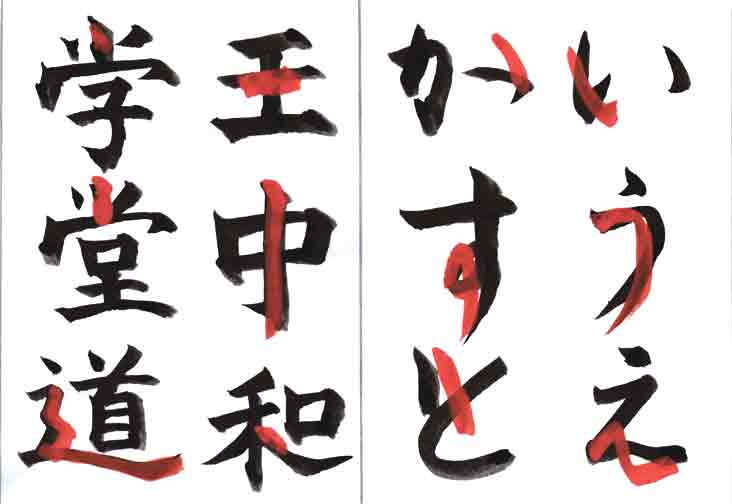 いうえ
かすと
王中和
学堂道